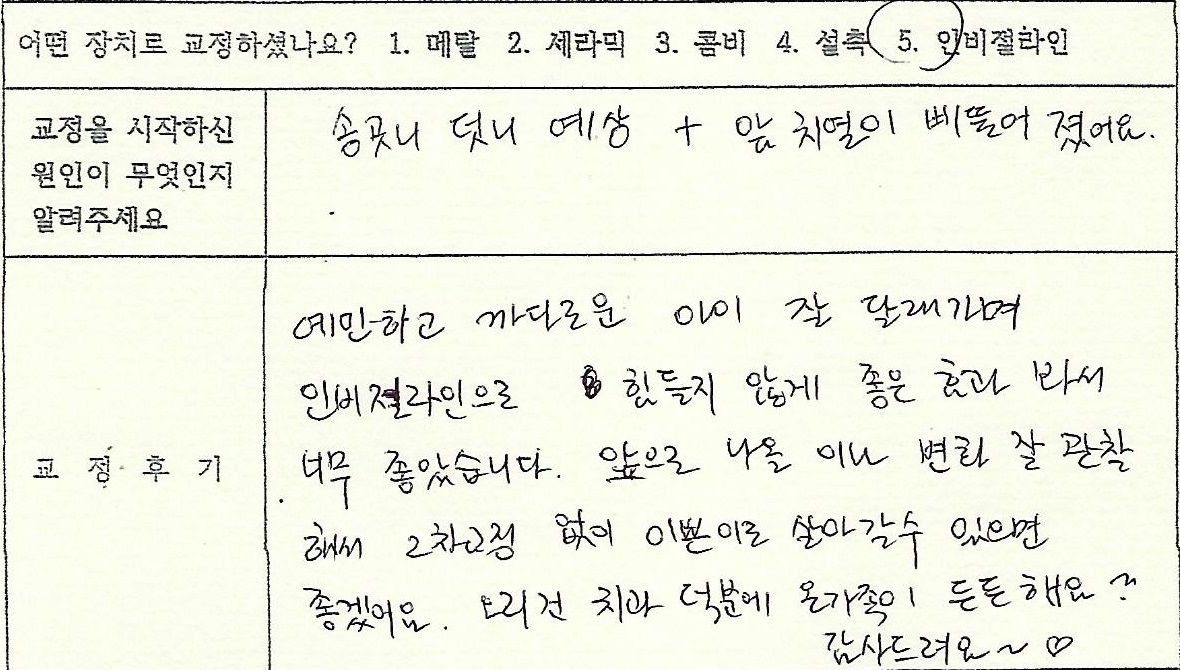 어떤 장치로 교정하셨나요? 1. 메탈 2. 세라믹 3. 콤비 4. 설측 5. 인비절라인
교정을 시작하신
원인이 무엇인지
알려주세요
송곳니 덧니 예상 + 앞 치열이 삐뚤어 졌어요.
교 정 후 기
예민하고 까다로운 아이 잘 달래가며
인비절라인으로 힘들지 않게 좋은 효과 봐서
너무 좋았습니다. 앞으로 나올 이나 변화 잘 관찰
해서 2차교정 없이 이쁜이로 살아갈수 있으면
좋겠어요. 치과 덕분에 온가족이 든든해요
감사드려요~ ♡